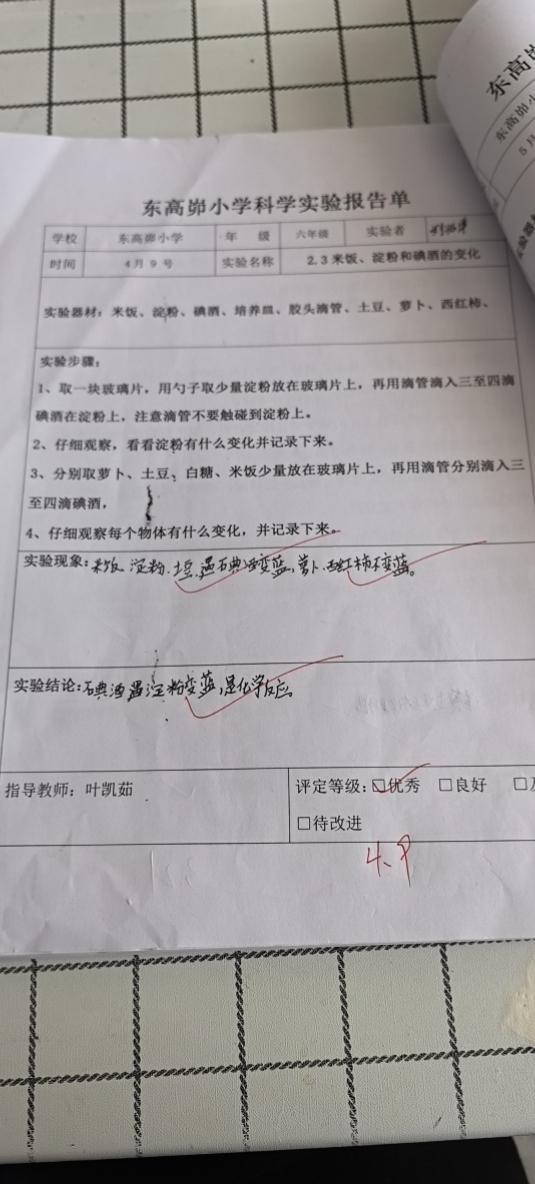 东高峁小学科学实验报告单
学校 东高峁小学 年 级 六年级 实验者
时间 4月9号 实验名称 2.3米饭、淀粉和碘酒的变化
实验器材：米饭、淀粉、碘酒、培养皿、胶头滴管、土豆、萝卜、西红柿、
实验步骤：
1、取一块玻璃片，用勺子取少量淀粉放在玻璃片上，再用滴管滴入三至四滴
碘酒在淀粉上，注意滴管不要触碰到淀粉上。
2、仔细观察，看看淀粉有什么变化并记录下来。
3、分别取萝卜、土豆、白糖、米饭少量放在玻璃片上，再用滴管分别滴入三
至四滴碘酒，
4、仔细观察每个物体有什么变化，并记录下来。
实验现象：米饭、淀粉、土豆，遇碘酒变蓝，萝卜、西红柿不变蓝。
实验结论：碘酒遇淀粉变蓝，是化学反应。
指导教师：叶凯茹 评定等级：☑优秀 □良好 □
□待改进
4、9
东高峁
东高峁小
5月
实验器材